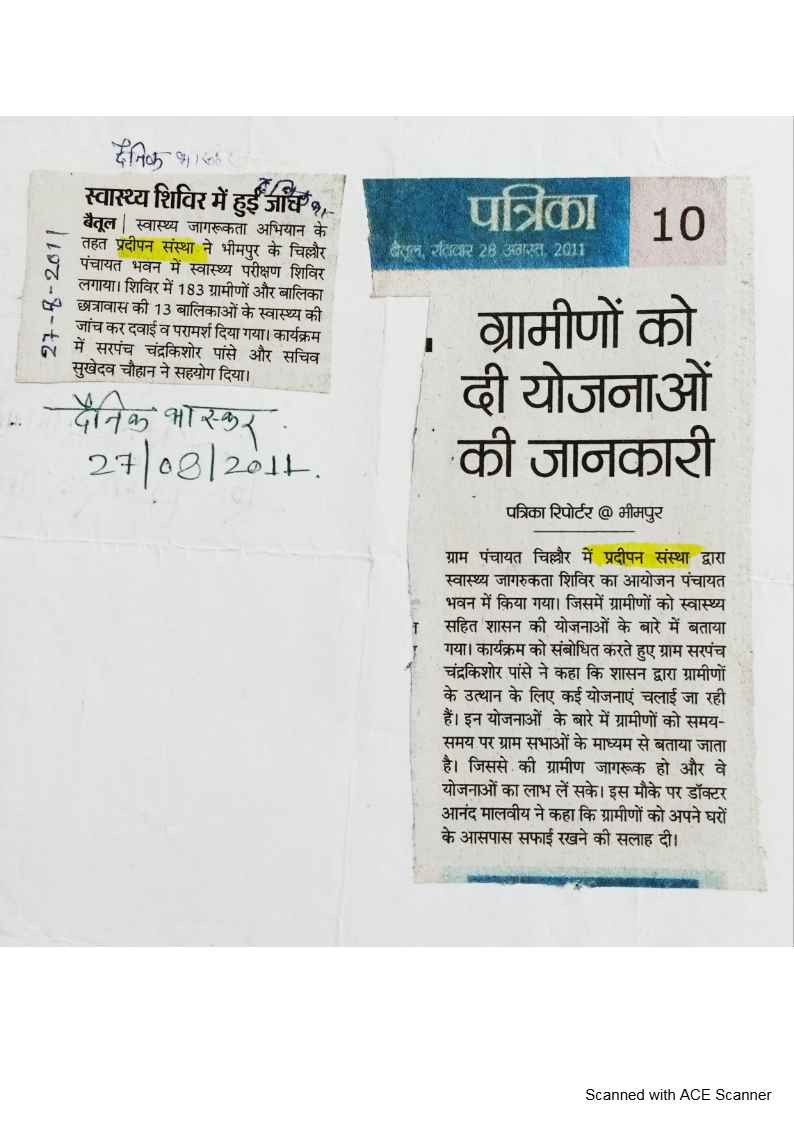 दैनिक भास्कर
स्वास्थ्य शिविर में हुई जांच
दैनिक भा-
बैतूल | स्वास्थ्य जागरूकता अभियान के
तहत प्रदीपन संस्था ने भीमपुर के चिल्लौर
पंचायत भवन में स्वास्थ्य परीक्षण शिविर
लगाया। शिविर में 183 ग्रामीणों और बालिका
छात्रावास की 13 बालिकाओं के स्वास्थ्य की
जांच कर दवाई व परामर्श दिया गया। कार्यक्रम
में सरपंच चंद्रकिशोर पांसे और सचिव
सुखेदव चौहान ने सहयोग दिया।
27-8-2011
दैनिक भास्कर.
27/08/2011.
पत्रिका
10
बैतूल, रविवार 28 अगस्त, 2011
ग्रामीणों को
दी योजनाओं
की जानकारी
पत्रिका रिपोर्टर @ भीमपुर
ग्राम पंचायत चिल्लौर में प्रदीपन संस्था द्वारा
स्वास्थ्य जागरुकता शिविर का आयोजन पंचायत
भवन में किया गया। जिसमें ग्रामीणों को स्वास्थ्य
सहित शासन की योजनाओं के बारे में बताया
गया। कार्यक्रम को संबोधित करते हुए ग्राम सरपंच
चंद्रकिशोर पांसे ने कहा कि शासन द्वारा ग्रामीणों
के उत्थान के लिए कई योजनाएं चलाई जा रही
हैं। इन योजनाओं के बारे में ग्रामीणों को समय-
समय पर ग्राम सभाओं के माध्यम से बताया जाता
है। जिससे की ग्रामीण जागरूक हो और वे
योजनाओं का लाभ लें सके। इस मौके पर डॉक्टर
आनंद मालवीय ने कहा कि ग्रामीणों को अपने घरों
के आसपास सफाई रखने की सलाह दी।
Scanned with ACE Scanner